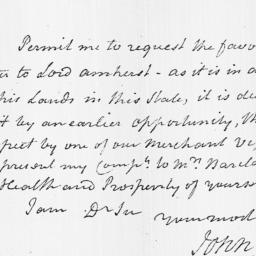 Permit me to request the favo
er to Lord amherst - as it is in a
his Lands in this State, it is de
t by an earlier opportunity, th
pect by one of our Merchant Ve
present my Compts. to Mrs. Barcla
Health and Prosperity of yourse
I am Dr Sir
your most
JOHN